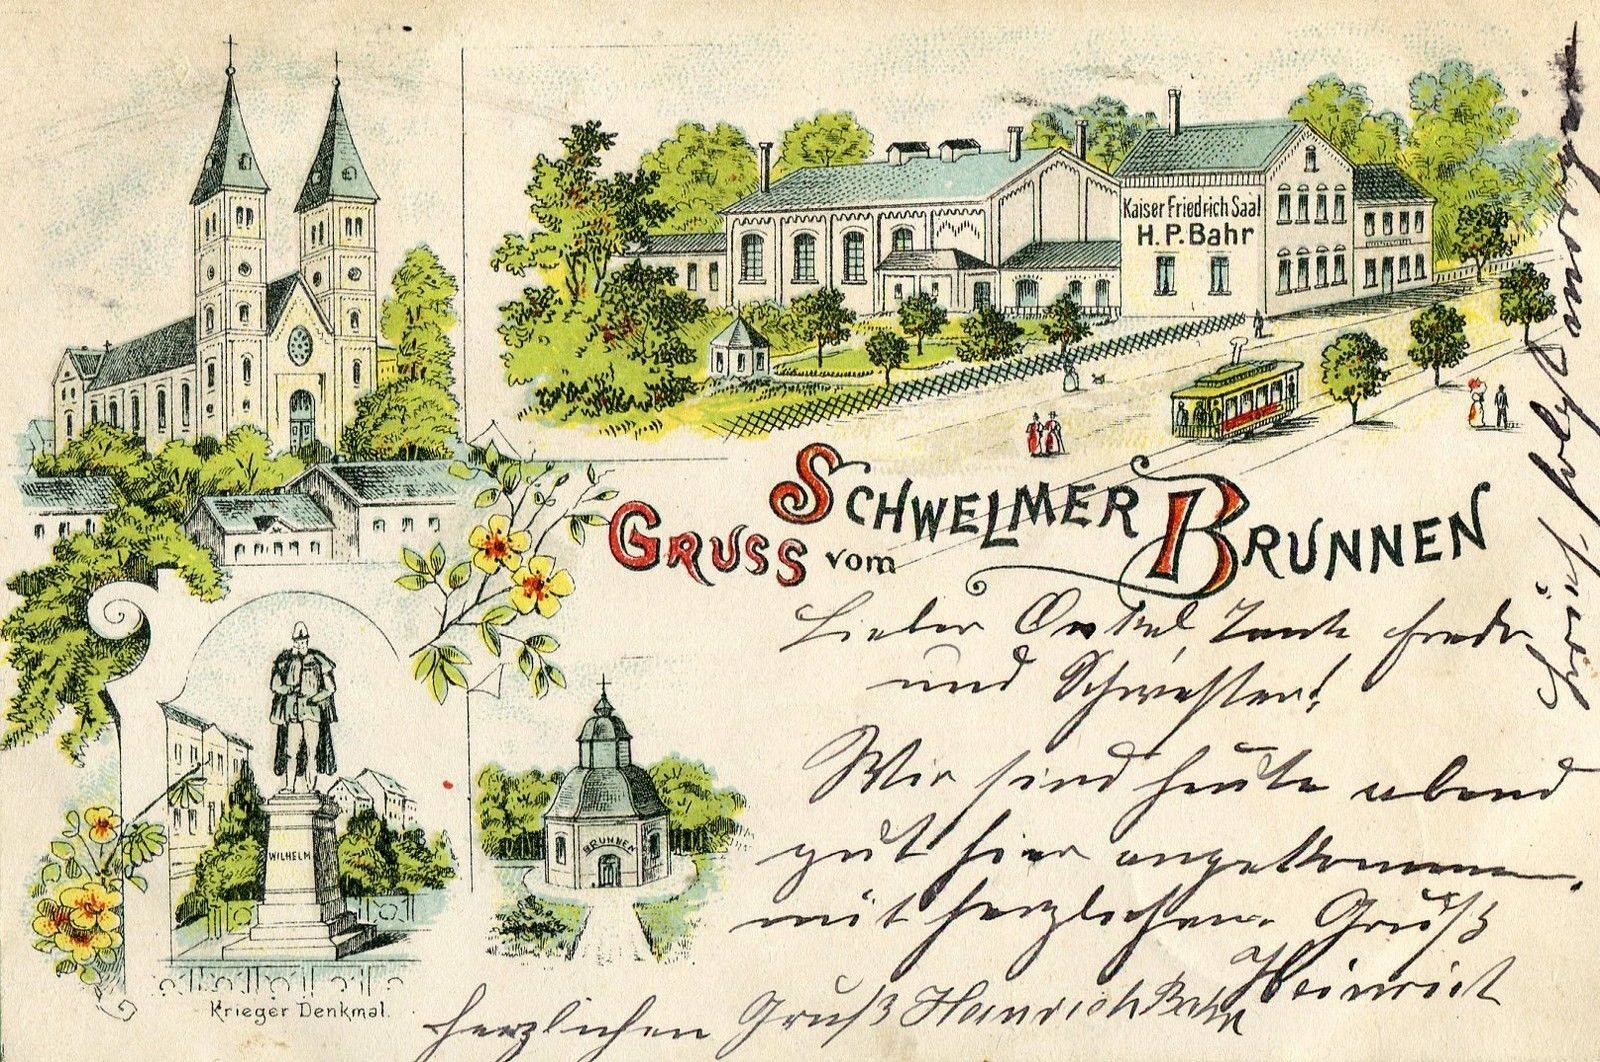 Kaiser Friedrich Saal
H. P. Bahr
GRUSS vom SCHWELMER BRUNNEN
WILHELM
BRUNNEN
Krieger Denkmal.
Lieber Onkel, Tante
und Schwester!
Wir sind heute abend
gut hier angekommen.
mit herzlichen Gruß
Heinrich
herzlichen Gruß Heinrich